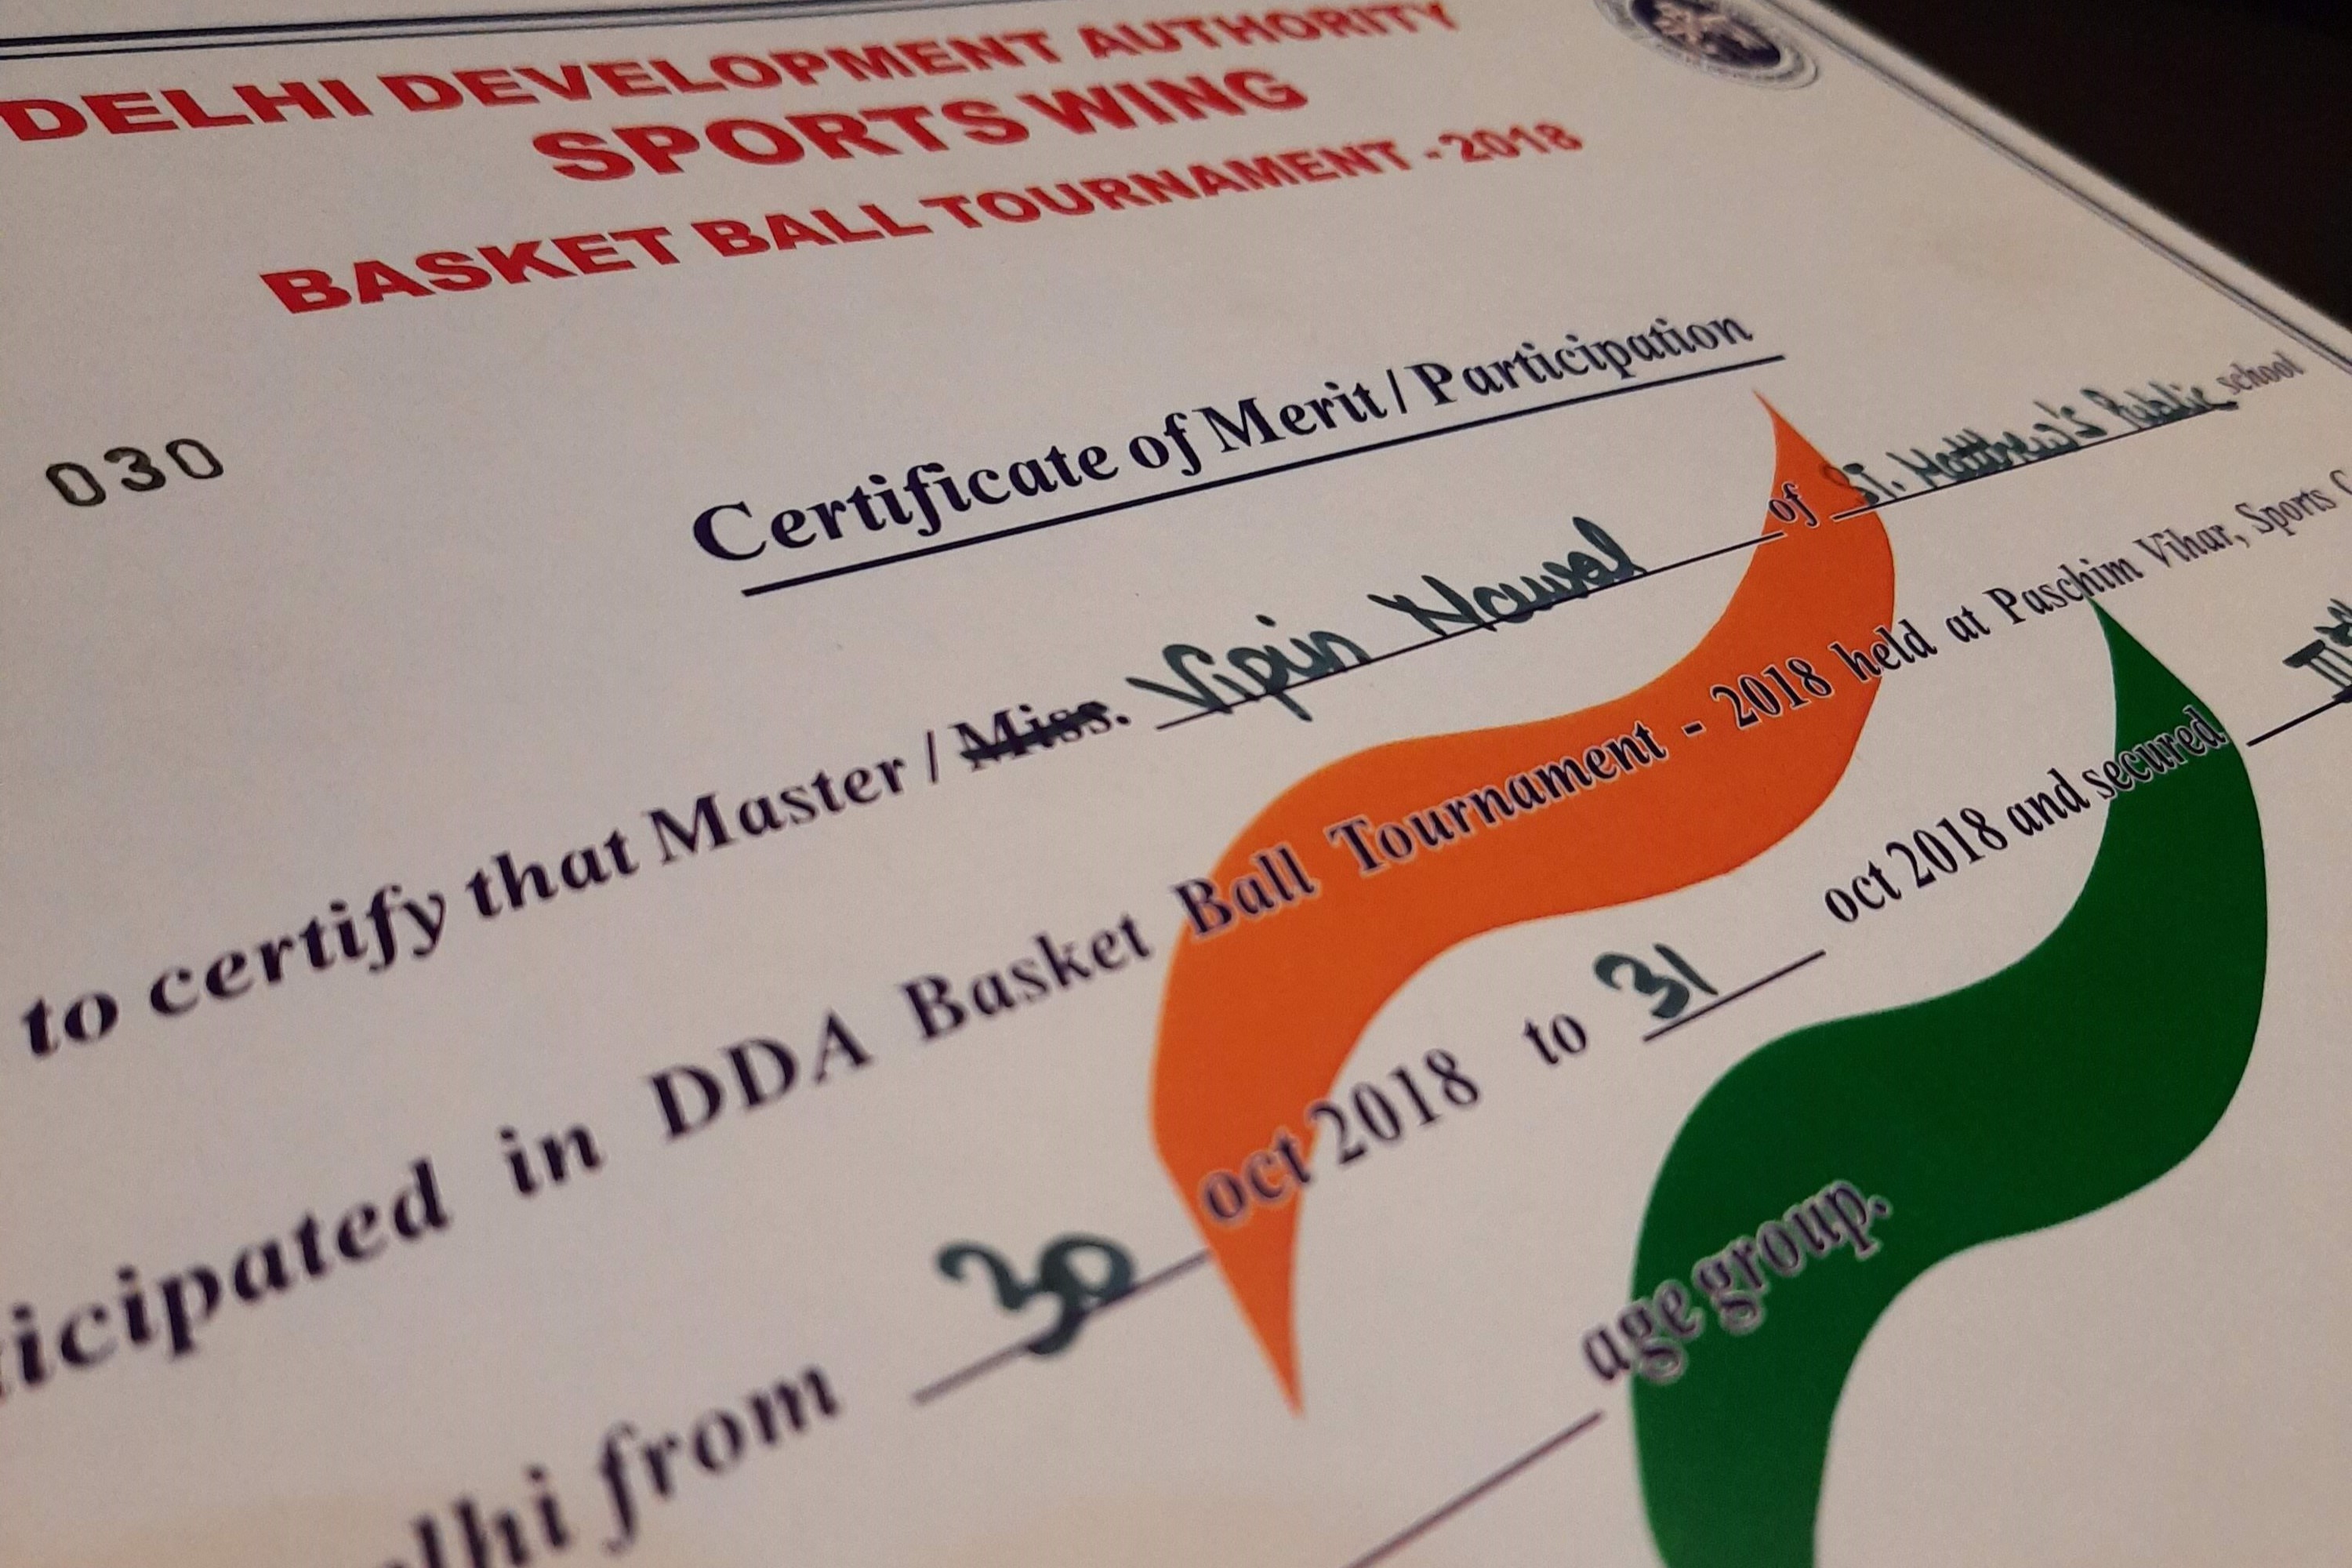 DELHI DEVELOPMENT AUTHORITY
SPORTS WING
BASKET BALL TOURNAMENT - 2018
030
Certificate of Merit / Participation
to certify that Master / Miss. Vipin Nawal of St. Matthew's Public school
icipated in DDA Basket Ball Tournament - 2018 held at Paschim Vihar, Sports C
lhi from 30 oct 2018 to 31 oct 2018 and secured
age group.